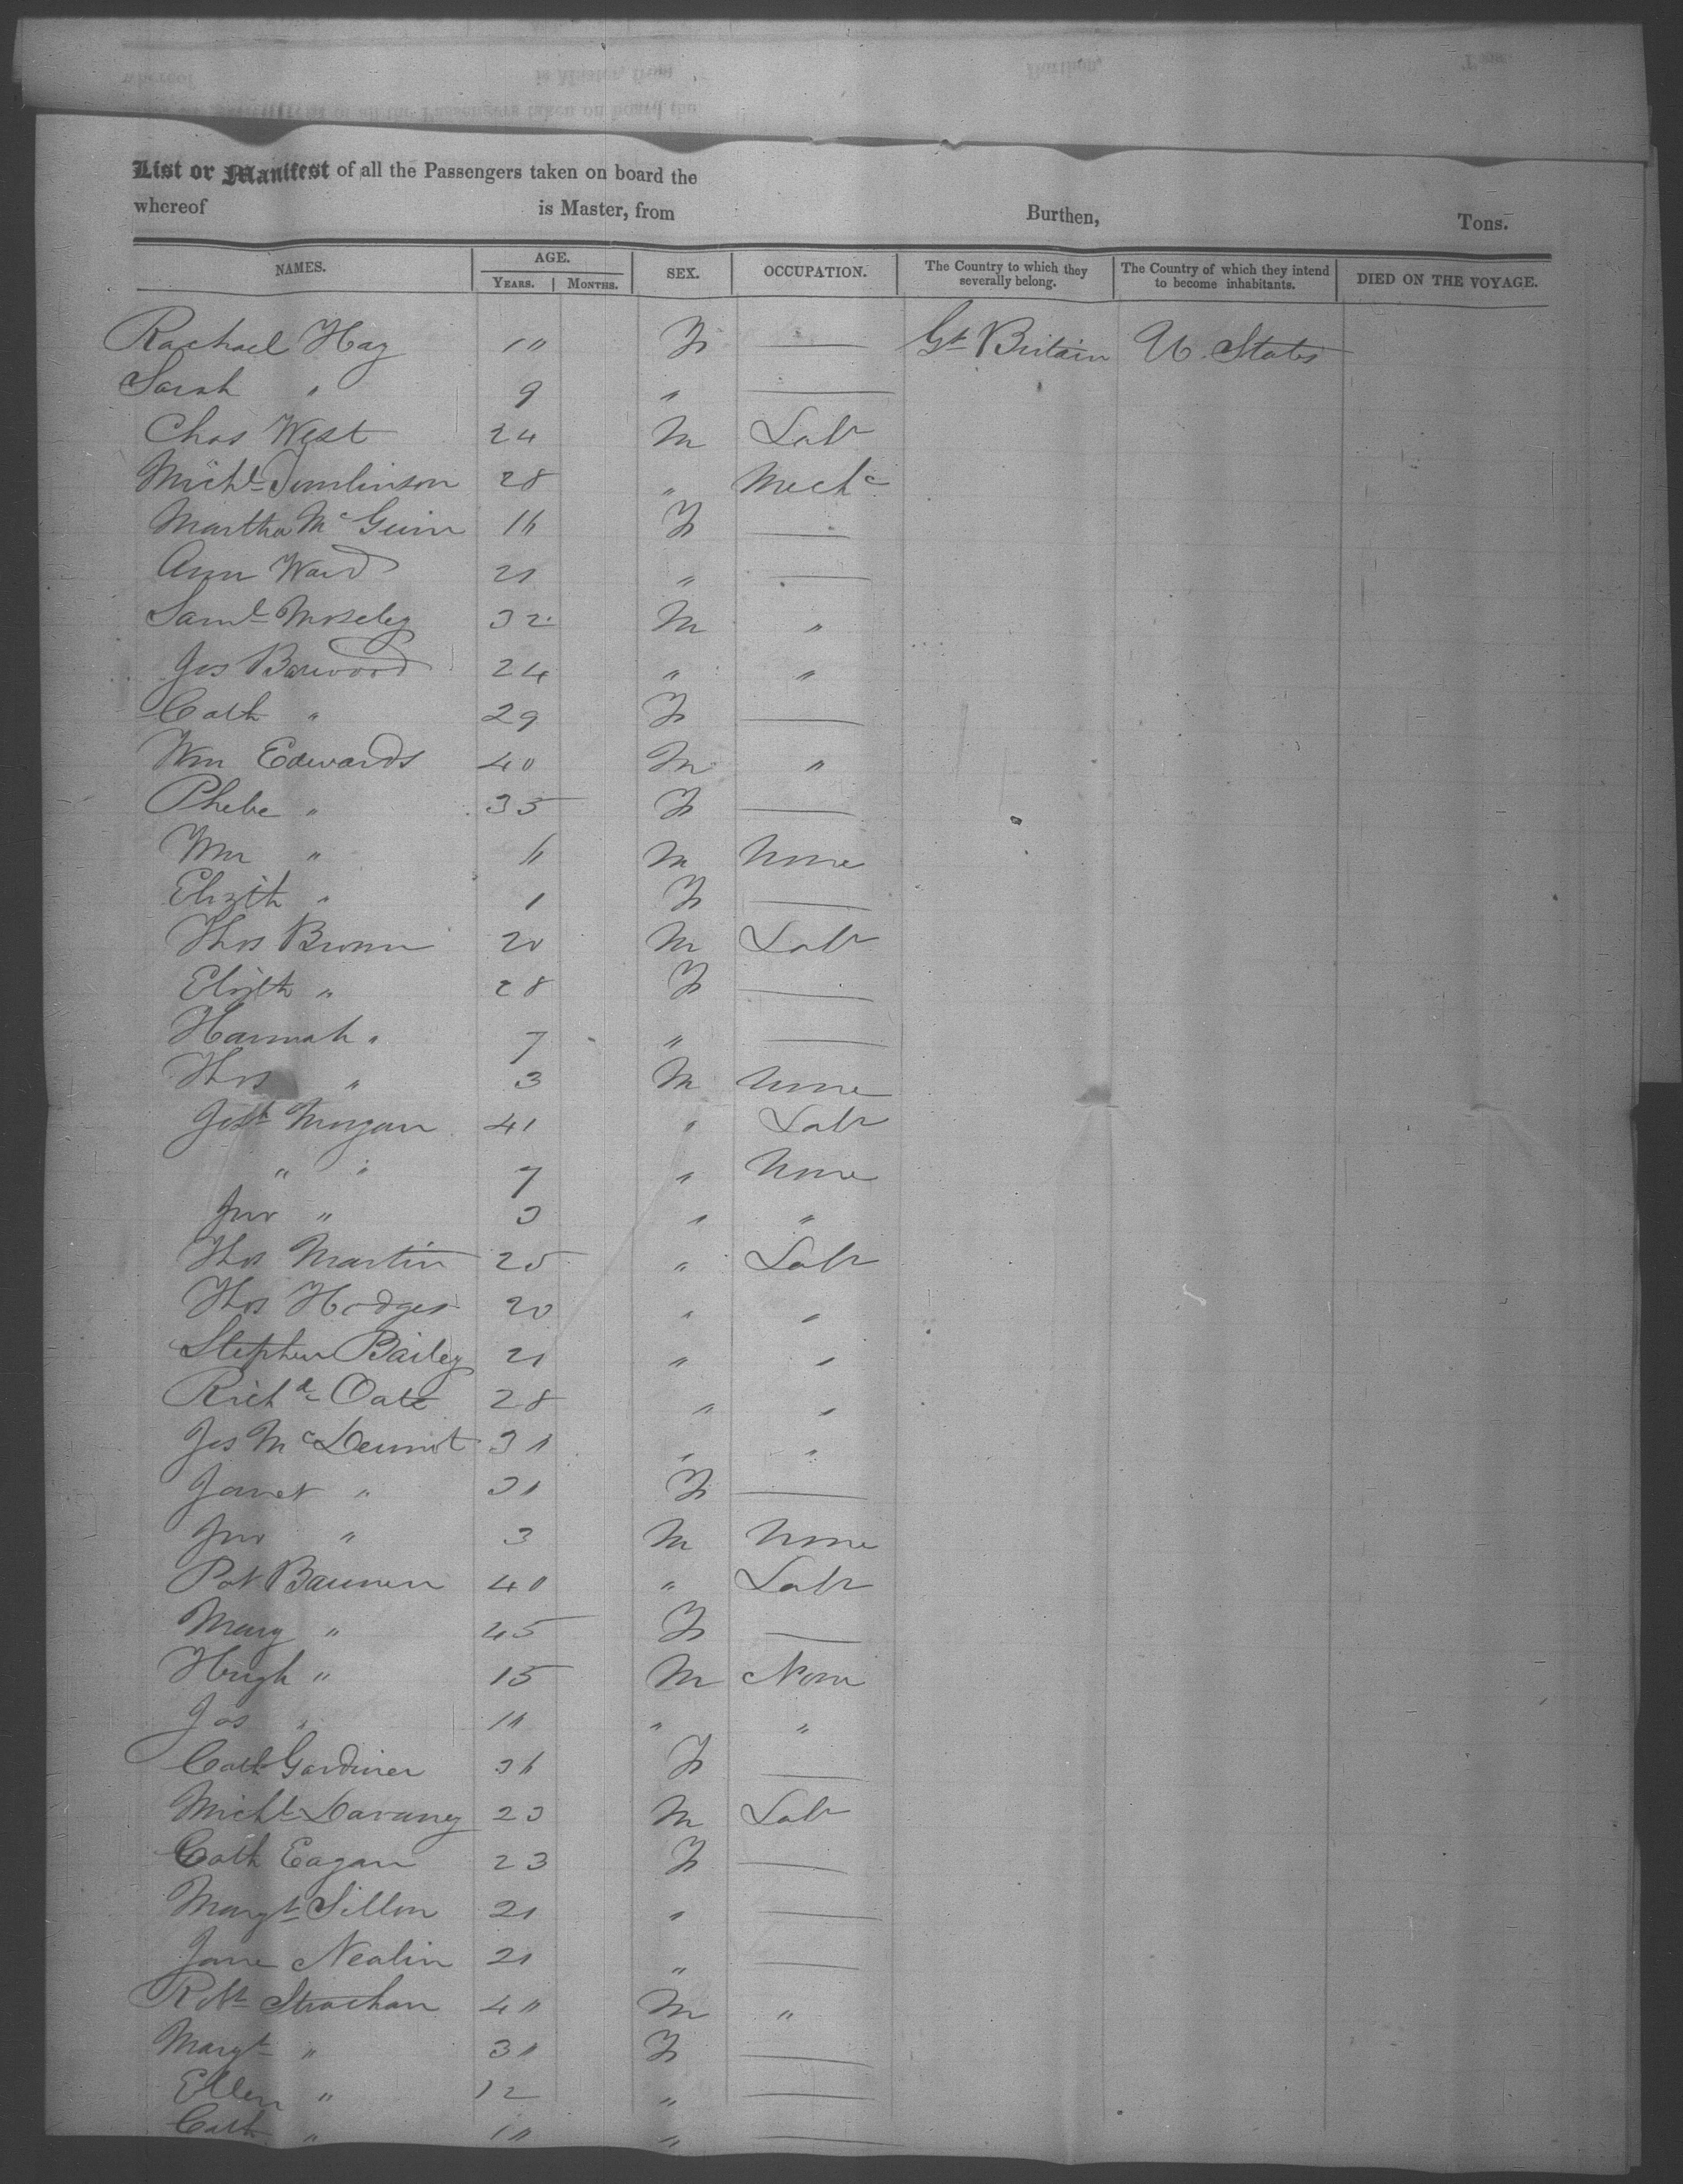 List or Manifest of all the Passengers taken on board the
whereof is Master, from Burthen, Tons.
NAMES. AGE. YEARS. MONTHS. SEX. OCCUPATION. The Country to which they severally belong. The Country of which they intend to become inhabitants. DIED ON THE VOYAGE.
Rachael Hay 10 F — Gt Britain U. States
Sarah " 9 " —
Chas West 24 M Labr
Michl Tomlinson 28 " Mechc
Martha McGuin 16 F —
Ann Ward 21 " —
Saml Moseley 32 M "
Jos Barwood 24 " "
Cath " 29 F —
Wm Edwards 40 M "
Phebe " 35 F —
Wm " 6 M None
Elizth " 1 F —
Thos Brown 20 M Labr
Elizth " 28 F —
Hannah " 7 " —
Thos " 3 M None
Josh Morgan 41 " Labr
" " 7 " None
Jno " 3 " "
Thos Martin 25 " Labr
Thos Hodges 20 " "
Stephen Bailey 21 " "
Richd Oate 28 " "
Jas McDermot 31 " "
Janet " 31 F —
Jno " 3 M None
Pat Bannen 40 " Labr
Mary " 45 F —
Hugh " 15 M None
Jas " 11 " "
Cath Gardiner 36 F —
Michl Davaney 23 M Labr
Cath Eagan 23 F —
Margt Sillon 21 " —
Jane Nealin 21 " —
Robt Strachan 40 M "
Margt " 30 F —
Ellen " 12 " —
Cath " 10 " —